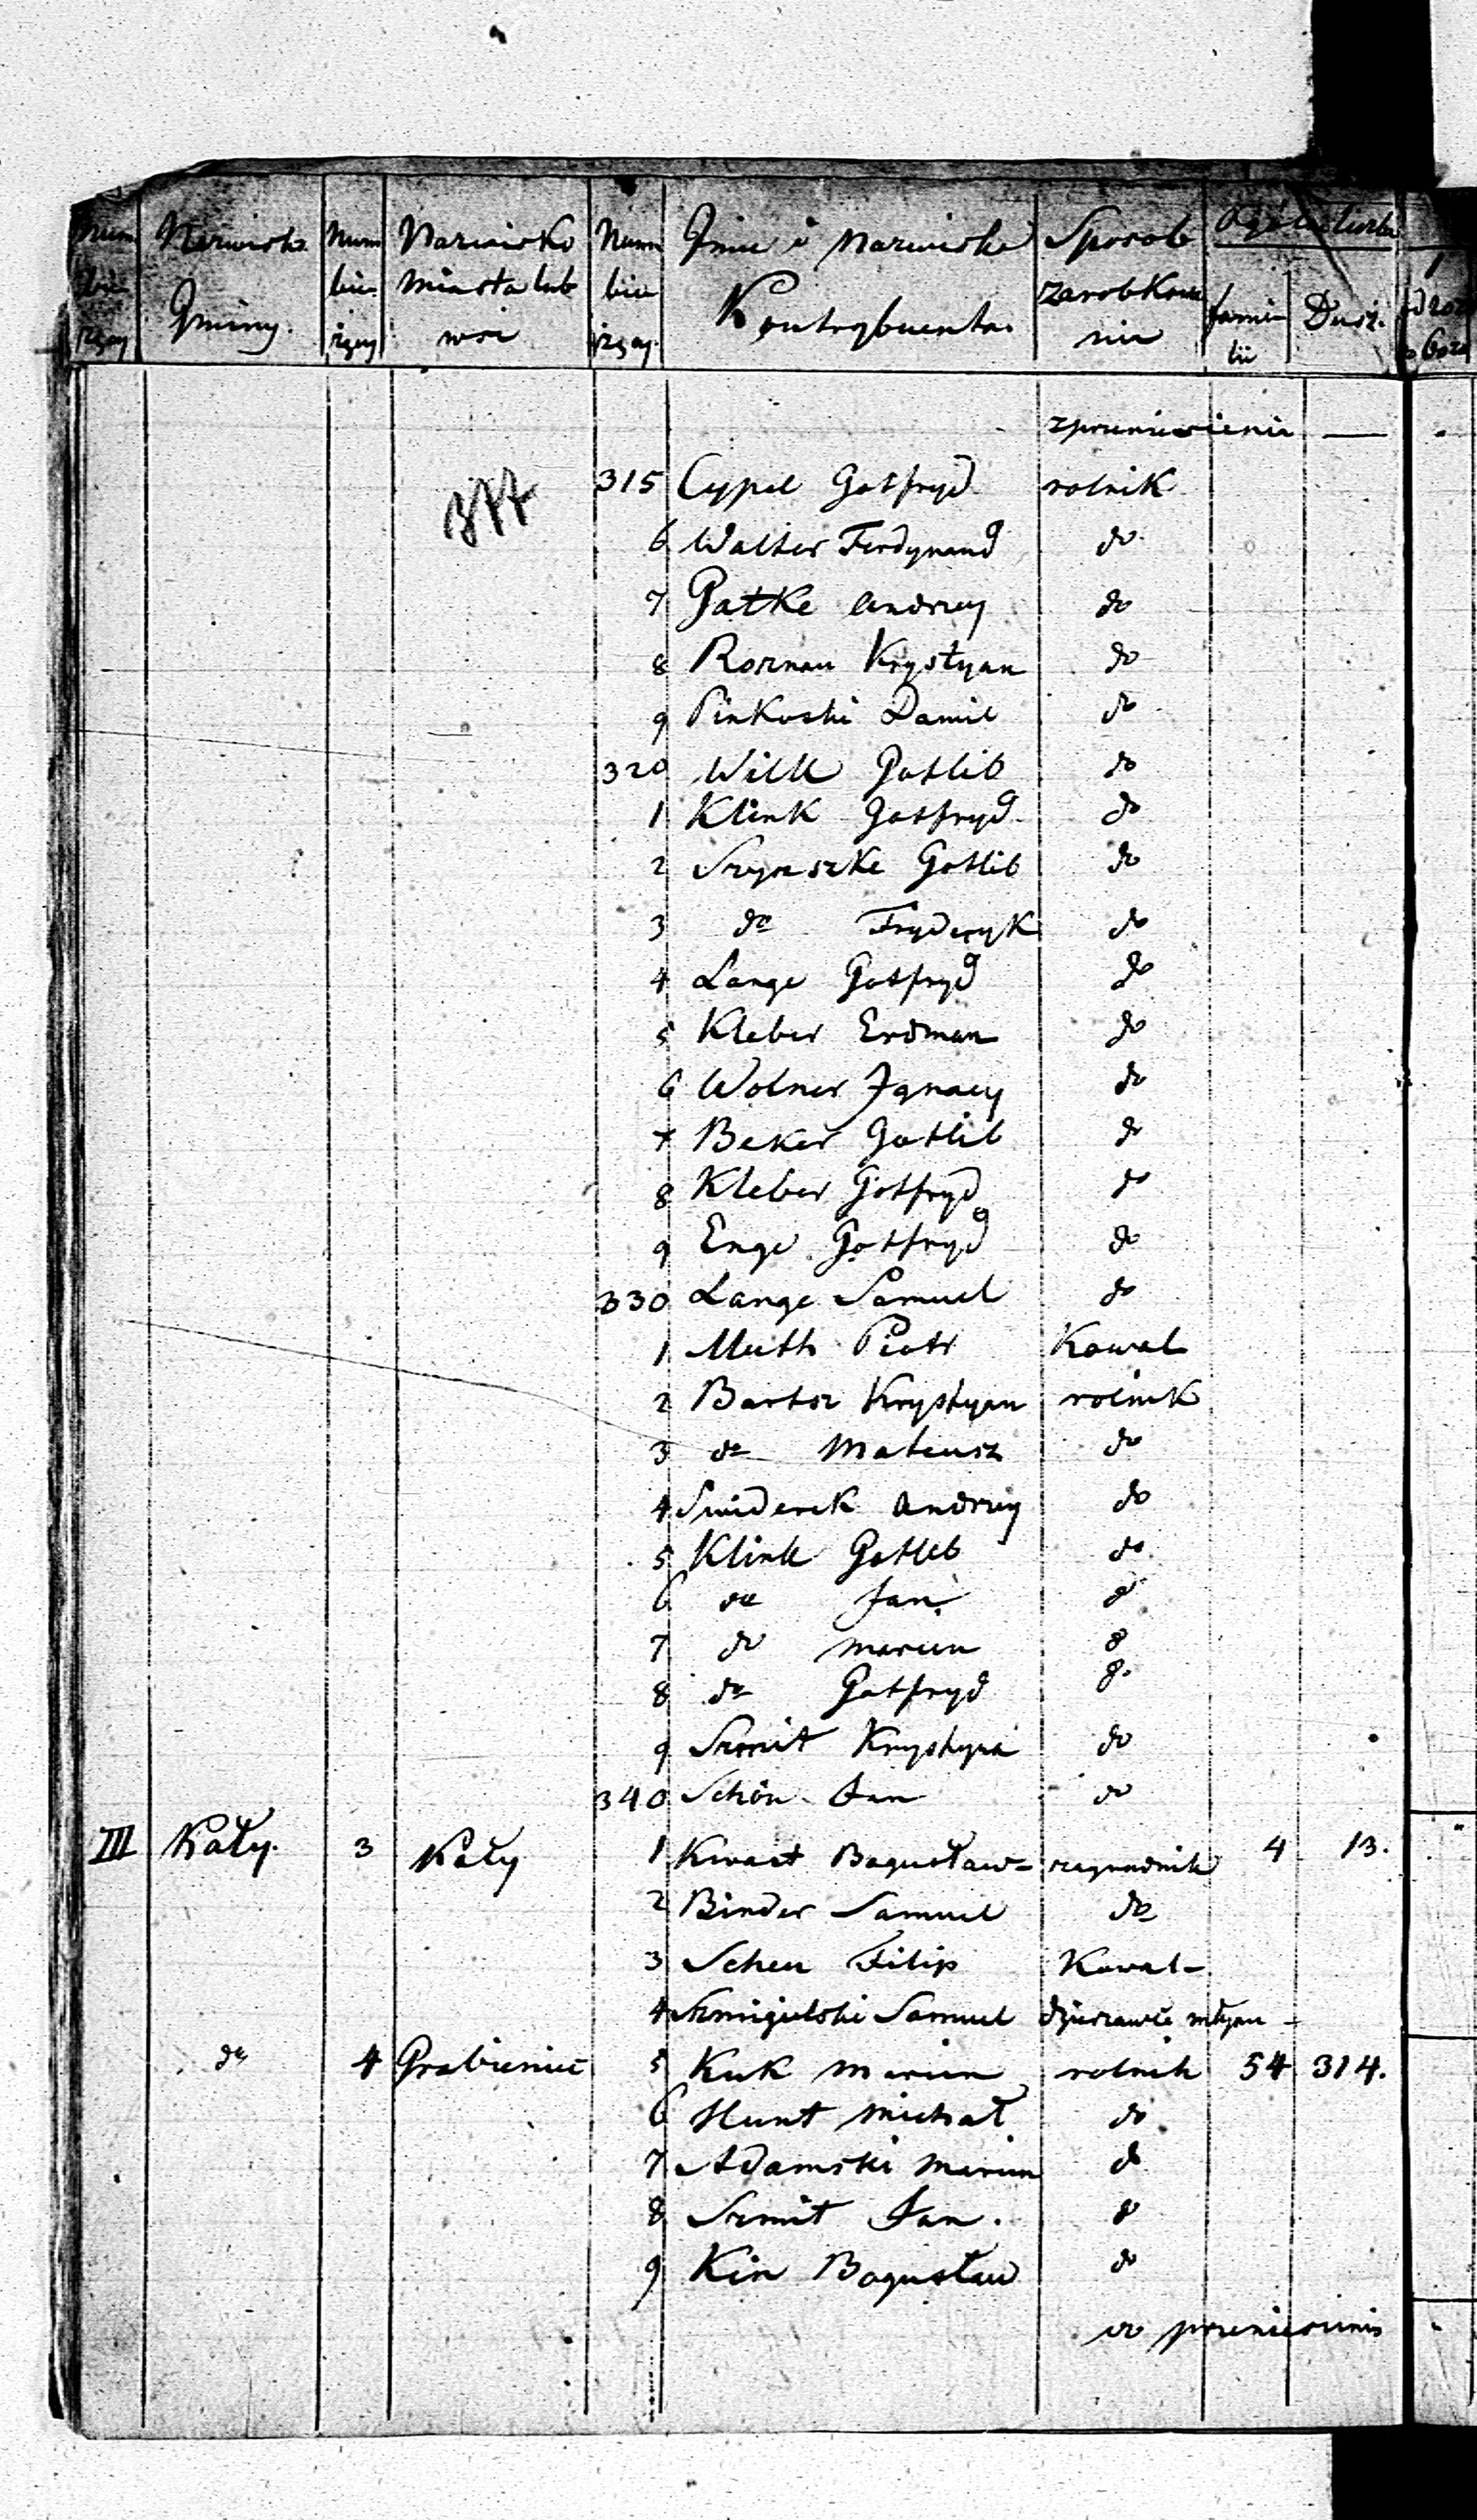 Num Nazwisko Num Nazwisko Num Imie i Nazwisko Sposob Ogół liczba
bie bie miasta lub bie Kontrybuenta zarobkowa 1
rzący Gminy. rzący wsi rzący nia familii Dusz.
z przeniesienia —
377
315 Cypel Gotfryd rolnik
6 Walter Ferdynand do
7 Gatke Andrzey do
8 Roznau Krystyan do
9 Pinkoski Daniel do
320 Wilk Gotlib do
1 Klink Gotfryd do
2 Szymszke Gotlib do
3 do Fryderyk do
4 Lange Gotfryd do
5 Kleber Erdman do
6 Wolner Ignacy do
7 Beker Gotlib do
8 Kleber Gotfryd do
9 Enge Gotfryd do
330 Lange Samuel do
1 Muth Piotr Kowal
2 Bartsz Krystyan rolnik
3 do Mateusz do
4 Sniderek Andrzey do
5 Klink Gotleb do
6 do Jan do
7 do Marcin do
8 do Gotfryd do
9 Szmit Krystyan do
340 Schön Jan do
III Kąty. 3 Kąty 1 Kwast Bogusław czynsznik 4 13.
2 Binder Samuel do
3 Scheu Filip Kowal
4 Szmigielski Samuel dzierzawca młyna
do 4 Grabieniec 5 Kuk Marcin rolnik 54 314.
6 Hunt Michał do
7 Adamski Marcin do
8 Szmit Jan. do
9 Kin Bogusław do
do przeniesienia